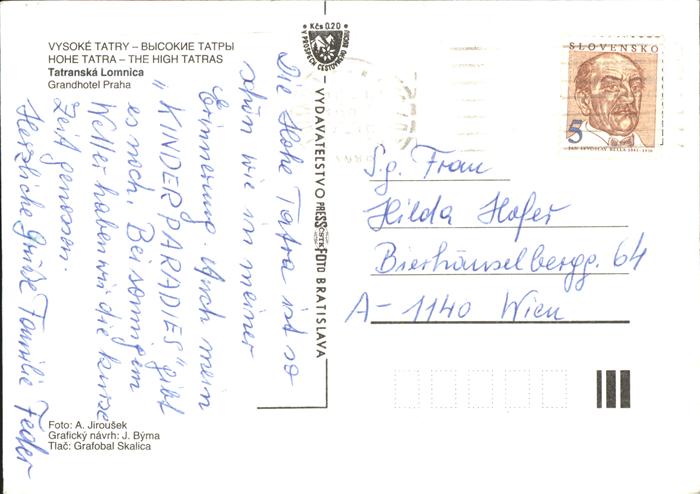 VYSOKÉ TATRY – ВЫСОКИЕ ТАТРЫ
HOHE TATRA – THE HIGH TATRAS
Tatranská Lomnica
Grandhotel Praha
Die Hohe Tatra ist so
schön wie in meiner
Erinnerung. Auch mein
"KINDERPARADIES" gibt
es noch. Bei sonnigem
Wetter haben wir die kurze
Zeit genossen.
Herzliche Grüße Familie Feder
Foto: A. Jiroušek
Grafický návrh: J. Býma
Tlač: Grafobal Skalica
Kčs 0.20
V PROSPECH CESTOVNÉHO RUCHU
VYDAVATEĽSTVO PRESSFOTO BRATISLAVA
ČSTK
SLOVENSKO
5
JÁN LEVOSLAV BELLA 1843–1936
S.g. Frau
Hilda Hofer
Bierhäuselbergg. 64
A-1140 Wien